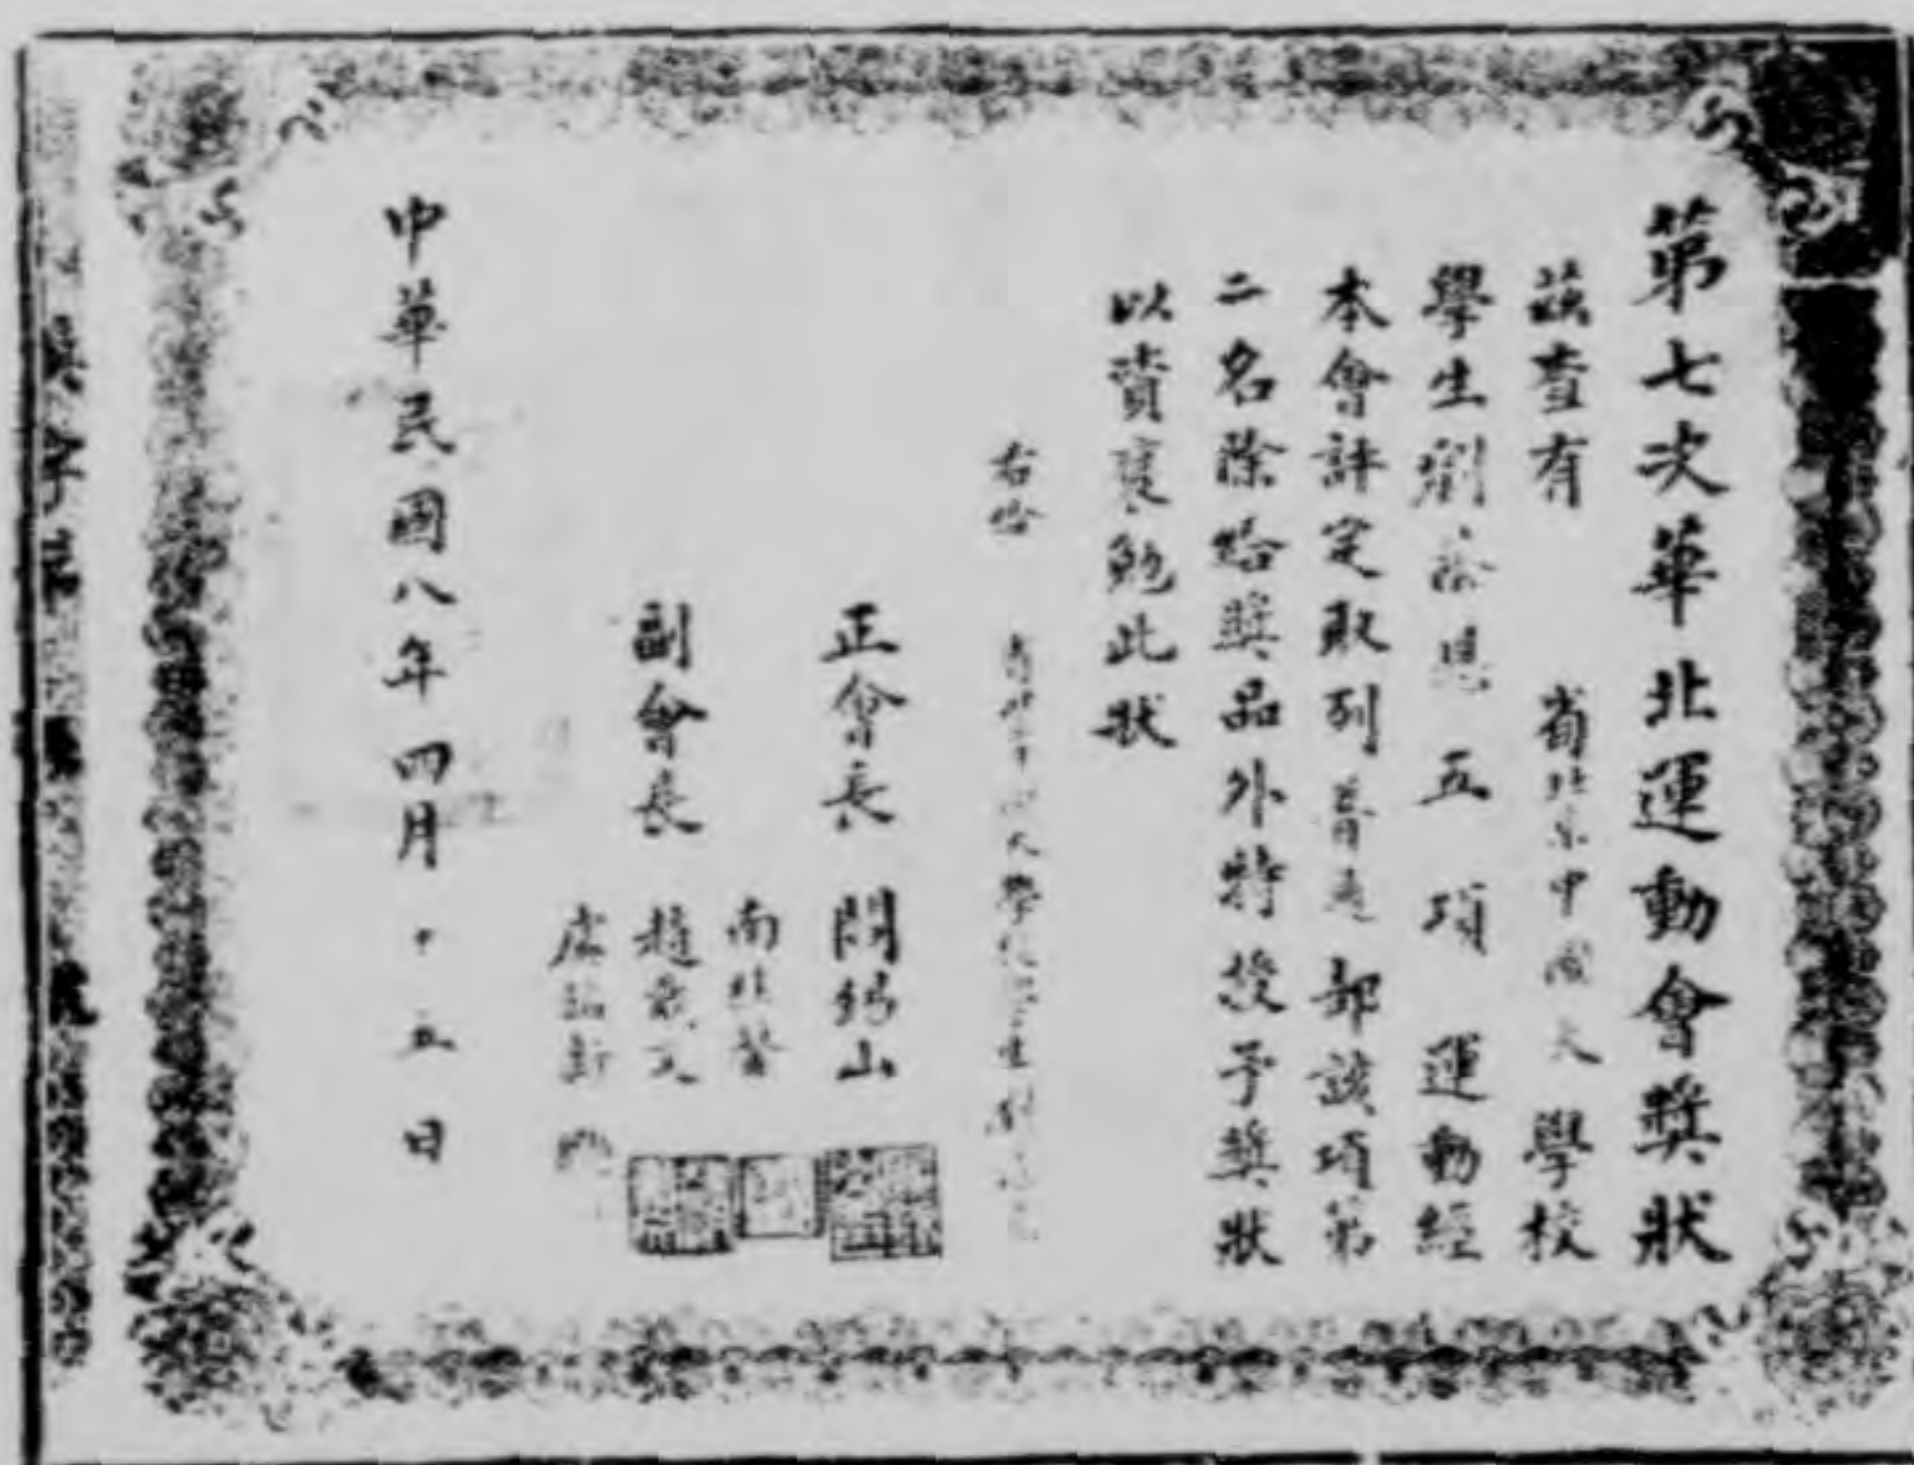 第七次華北運動會獎狀
茲查有 省北京中國大學校
學生劉 恩五項運動經
本會評定取列普通部該項第
二名除給獎品外特授予獎狀
以資褒勉此狀
右給 大學
正會長 閻錫山
南桂馨
副會長 趙戴文
虞
中華民國八年四月十五日